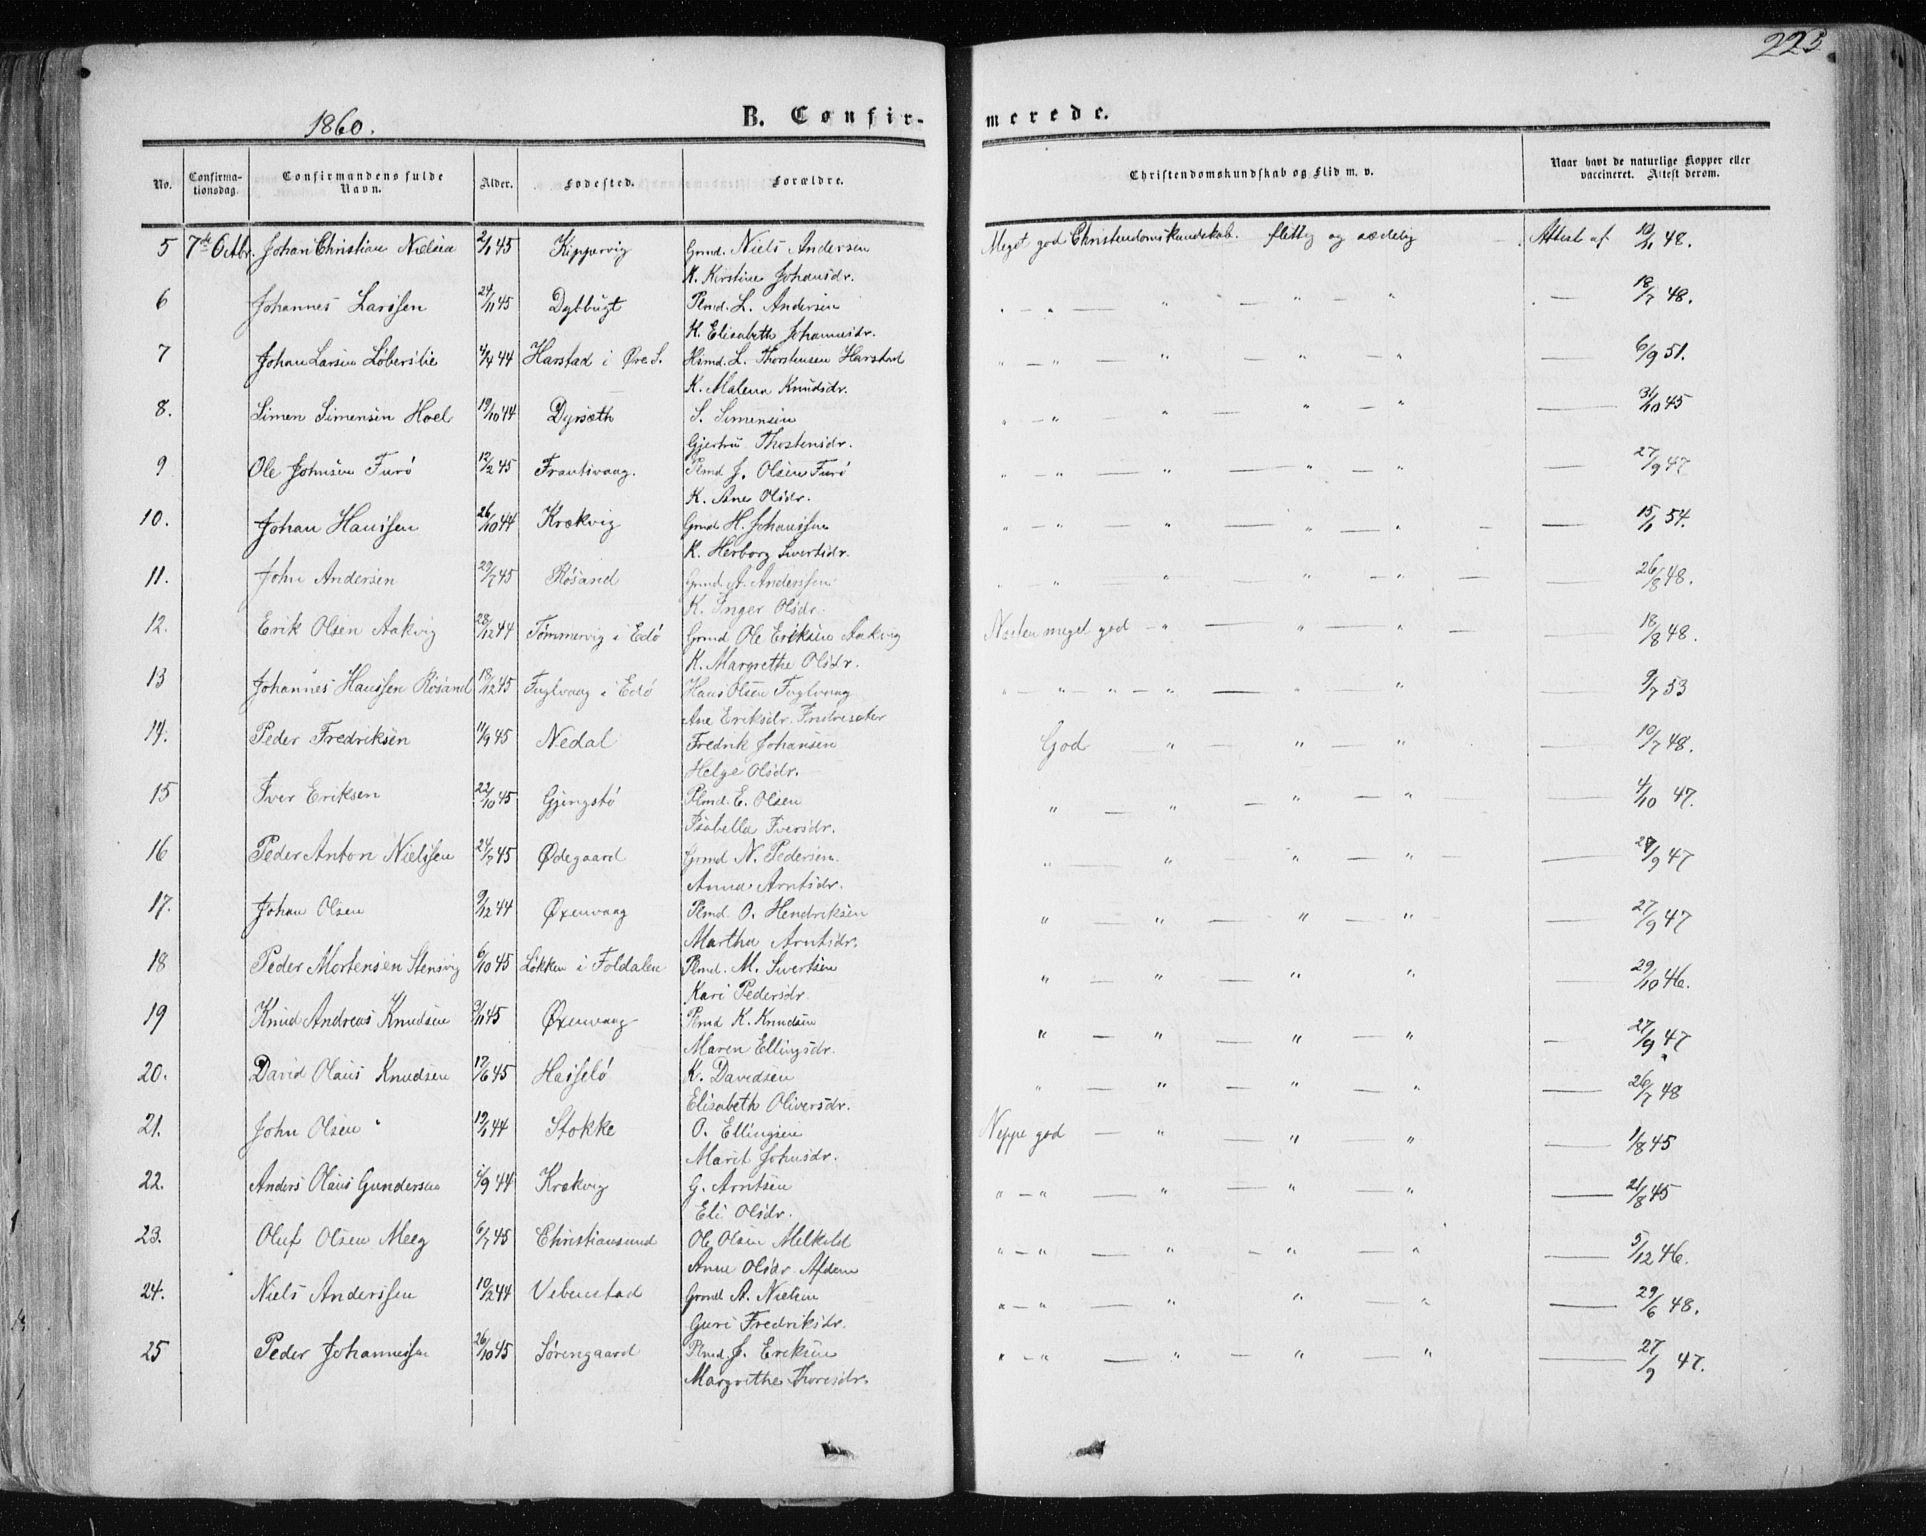 225
1860.
B. Confir-
merede.
No. Confirma-tionsdag. Confirmandens fulde Navn. Alder. Fødested. Forældre. Christendomskundskab og Flid m. v. Naar havt de naturlige Kopper eller vaccineret. Attest derom.
5 7de Octbr. Johan Christian Nielsen 2/1 45 Kippervig Grmd. Niels Andersen Meget god Christendomskundskab. flittig og sædelig Attest af 10/11 48.
K. Kirstine Johansdr.
6 Johannes Larssen 24/11 45 Dybbugt Plmd. L. Andersen " " — " — " — " — 18/7 48.
K. Elisabeth Johannesdr.
7 Johan Larsen Løberslie 4/4 44 Harstad i Øre S. Hrmd. L. Thorstensen Harstad " — " — " — " — " — 6/9 51.
K. Malena Knudsdr.
8. Simen Simensen Hoel 19/10 44 Dyrsæth S. Simensen " " — " — " — " — 31/10 45
Gjertru Thostensdr.
9 Ole Johnsen Furø 12/2 45 Frantsvaag. Plmd J. Olsen Furø " — " — " — " — " — 27/9 47
K. Ane Olsdr.
10. Johan Hanssen 26/10 44 Krækvig Grmd H. Johanssen " — " — " — " — " — 15/1 54.
K. Herborg Sivertsdr.
11. John Andersen 29/7 45 Røsand Grmd A. Anderssen " " " — " — " — 26/8 48.
K. Inger Olsdr.
12. Erik Olsen Aakvig 28/12 44 Tømmervig i Edø Grmd Ole Eriksen Aakvig Næsten meget god — " — " — " — 18/8 48.
K. Margrethe Olsdr.
13 Johannes Hanssen Røsand 18/12 45 Fuglvaag i Edø Hans Olsen Fuglvaag " — " " — " — " — " — 9/7 53
Ane Eriksdr. Indresæter
14. Peder Fredriksen 11/9 45 Nedal Fredrik Johansen God " — " — " — 10/7 48.
Helge Olsdr.
15 Iver Eriksen 22/10 45 Gjengstø Plmd. E. Olsen " — " — " — " — 4/10 47.
Isabella Iversdr.
16 Peder Anton Nielssen 24/7 45 Ødegaard Grmd N. Pedersen " — " " — " — 27/9 47
Anna Arntsdr.
17. Johan Olsen 9/12 44 Øxenvaag Plmd. O. Hendriksen " — " — " — " — 27/9 47
Martha Arntsdr.
18 Peder Mortensen Stensvig 6/10 45 Løkken i Foldalen Plmd. M. Sivertsen " — " — " — " — 29/10 46.
Kari Pedersdr
19 Knud Andreas Knudsen 9/11 45 Øxenvaag Plmd K. Knudsen " — " — " — " — 27/9 47
Maren Ellingsdr.
20. David Olaus Knudsen 17/6 45 Hasselø K. Davidsen " — " — " — " — 26/7 48
Elisabeth Oliversdr.
21. John Olsen " 19/1 44 Stokke O. Ellingsen Neppe god — " — " — " — 1/8 45
Marit Johnsdr.
22. Anders Olaus Gundersen 1/9 44 Krækvig G. Arntsen " — " — " — " — " — 21/8 45
Eli Olsdr.
23. Oluf Olsen Meeg 6/7 45 Christiansund Ole Olsen Melkild " — " — " — " — " — 5/12 46.
Anne Olsdr
24. Niels Anderssen 10/2 44 Vebenstad Grmd A. Nielsen " — " — " — " — " — 29/6 48.
Guri Fredriksdr.
25 Peder Johannessen 26/10 45 Sørengaard Plmd. J. Eriksen " — " — " — " — " — 27/9 47.
Margrethe Thoresdr.